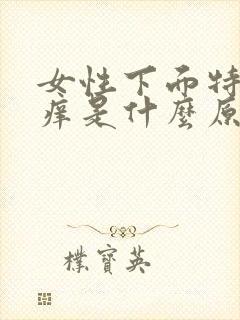 女性下面特
痒是什麼原
樸寶英